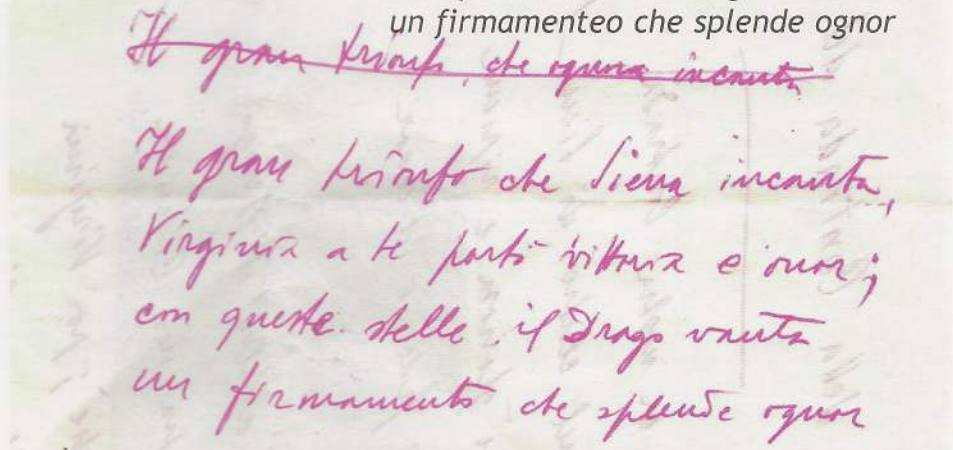 un firmamenteo che splende ognor
Il gran trionfo, che ognuno incanta
Il gran trionfo che Siena incanta,
Virginia a te portò vittoria e onor;
con queste stelle il Drago vanta
un firmamento che splende ognor